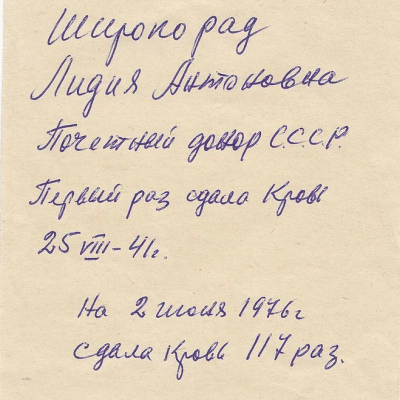 Широкорад
Лидия Антоновна
Почетный донор С.С.С.Р.
Первый раз сдала Кровь
25 VIII - 41г.
На 2 июня 1976г
сдала Кровь 117 раз.